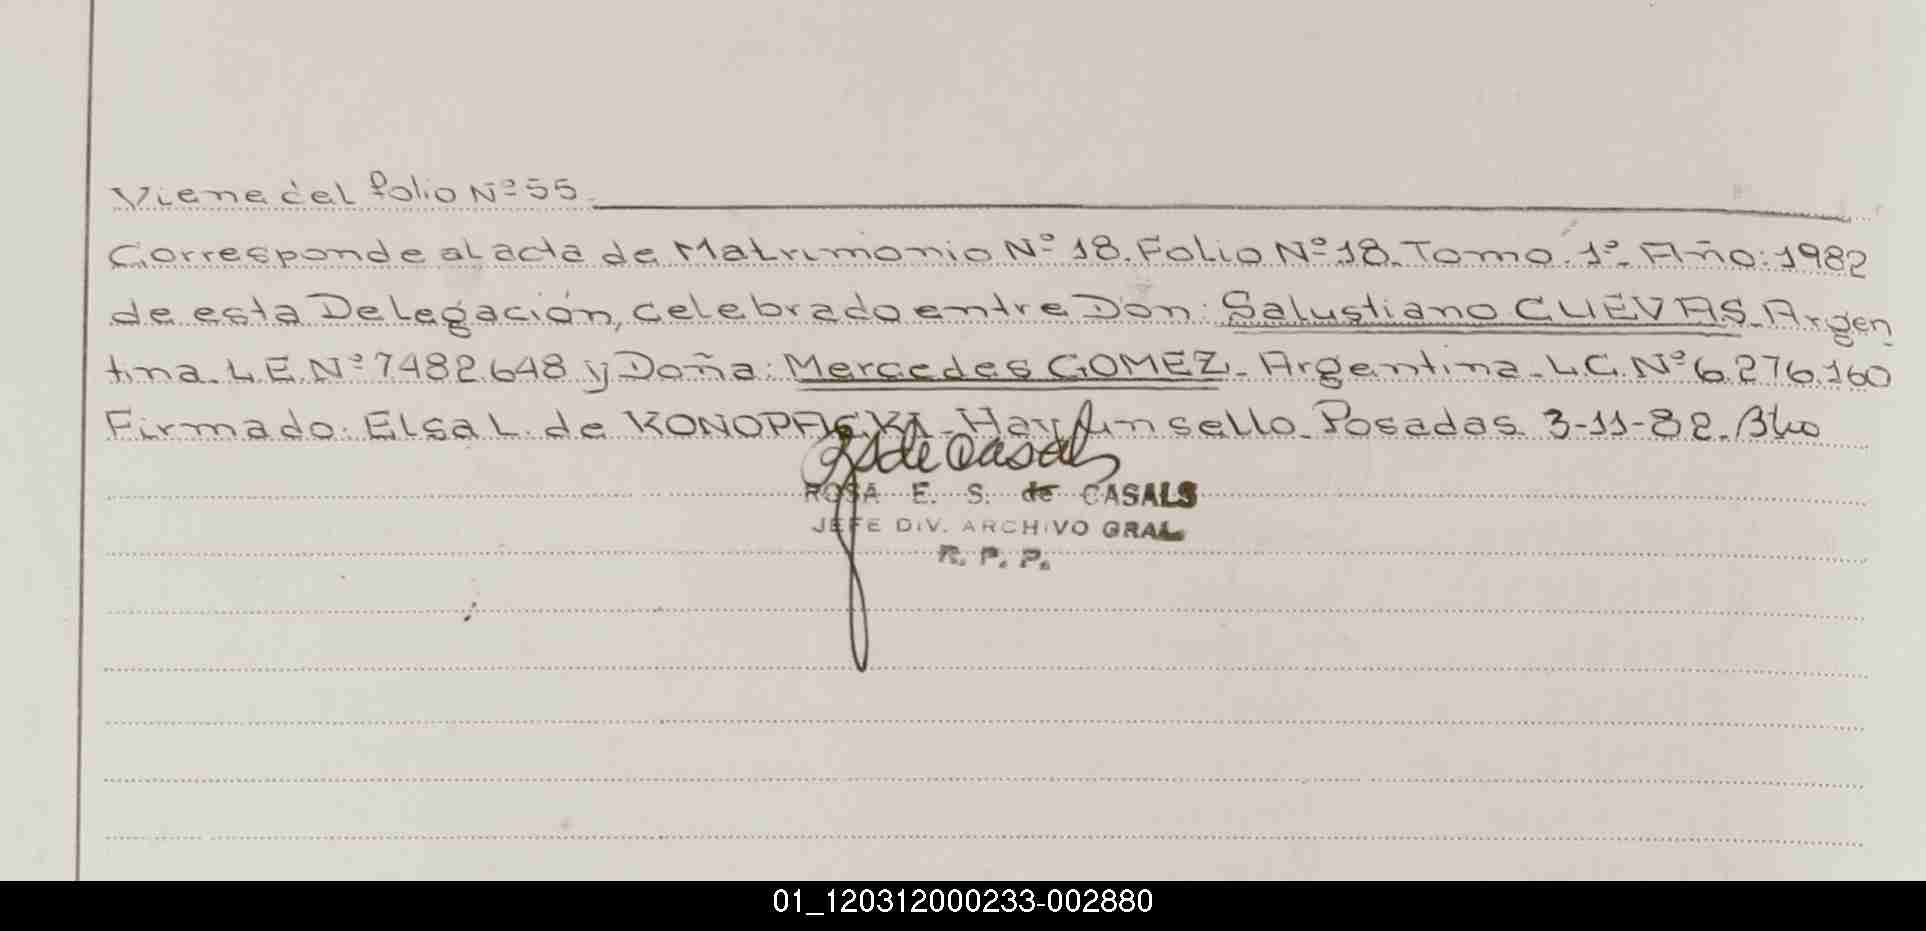 Viene del folio Nº 55.
Corresponde al acta de Matrimonio Nº 18. Folio Nº 18. Tomo 1º. Año: 1982
de esta Delegación, celebrado entre Don: Salustiano CUEVAS. Argen_
tina. L.E. Nº 7.482.648 y Doña: Mercedes GOMEZ. Argentina. L.C. Nº 6.276.160
Firmado: Elsa L. de KONOPACKI. Hay un sello. Posadas. 3-11-82.
RS de Casals
ROSA E. S. de CASALS
JEFE DIV. ARCHIVO GRAL
R. P. P.
01_120312000233-002880